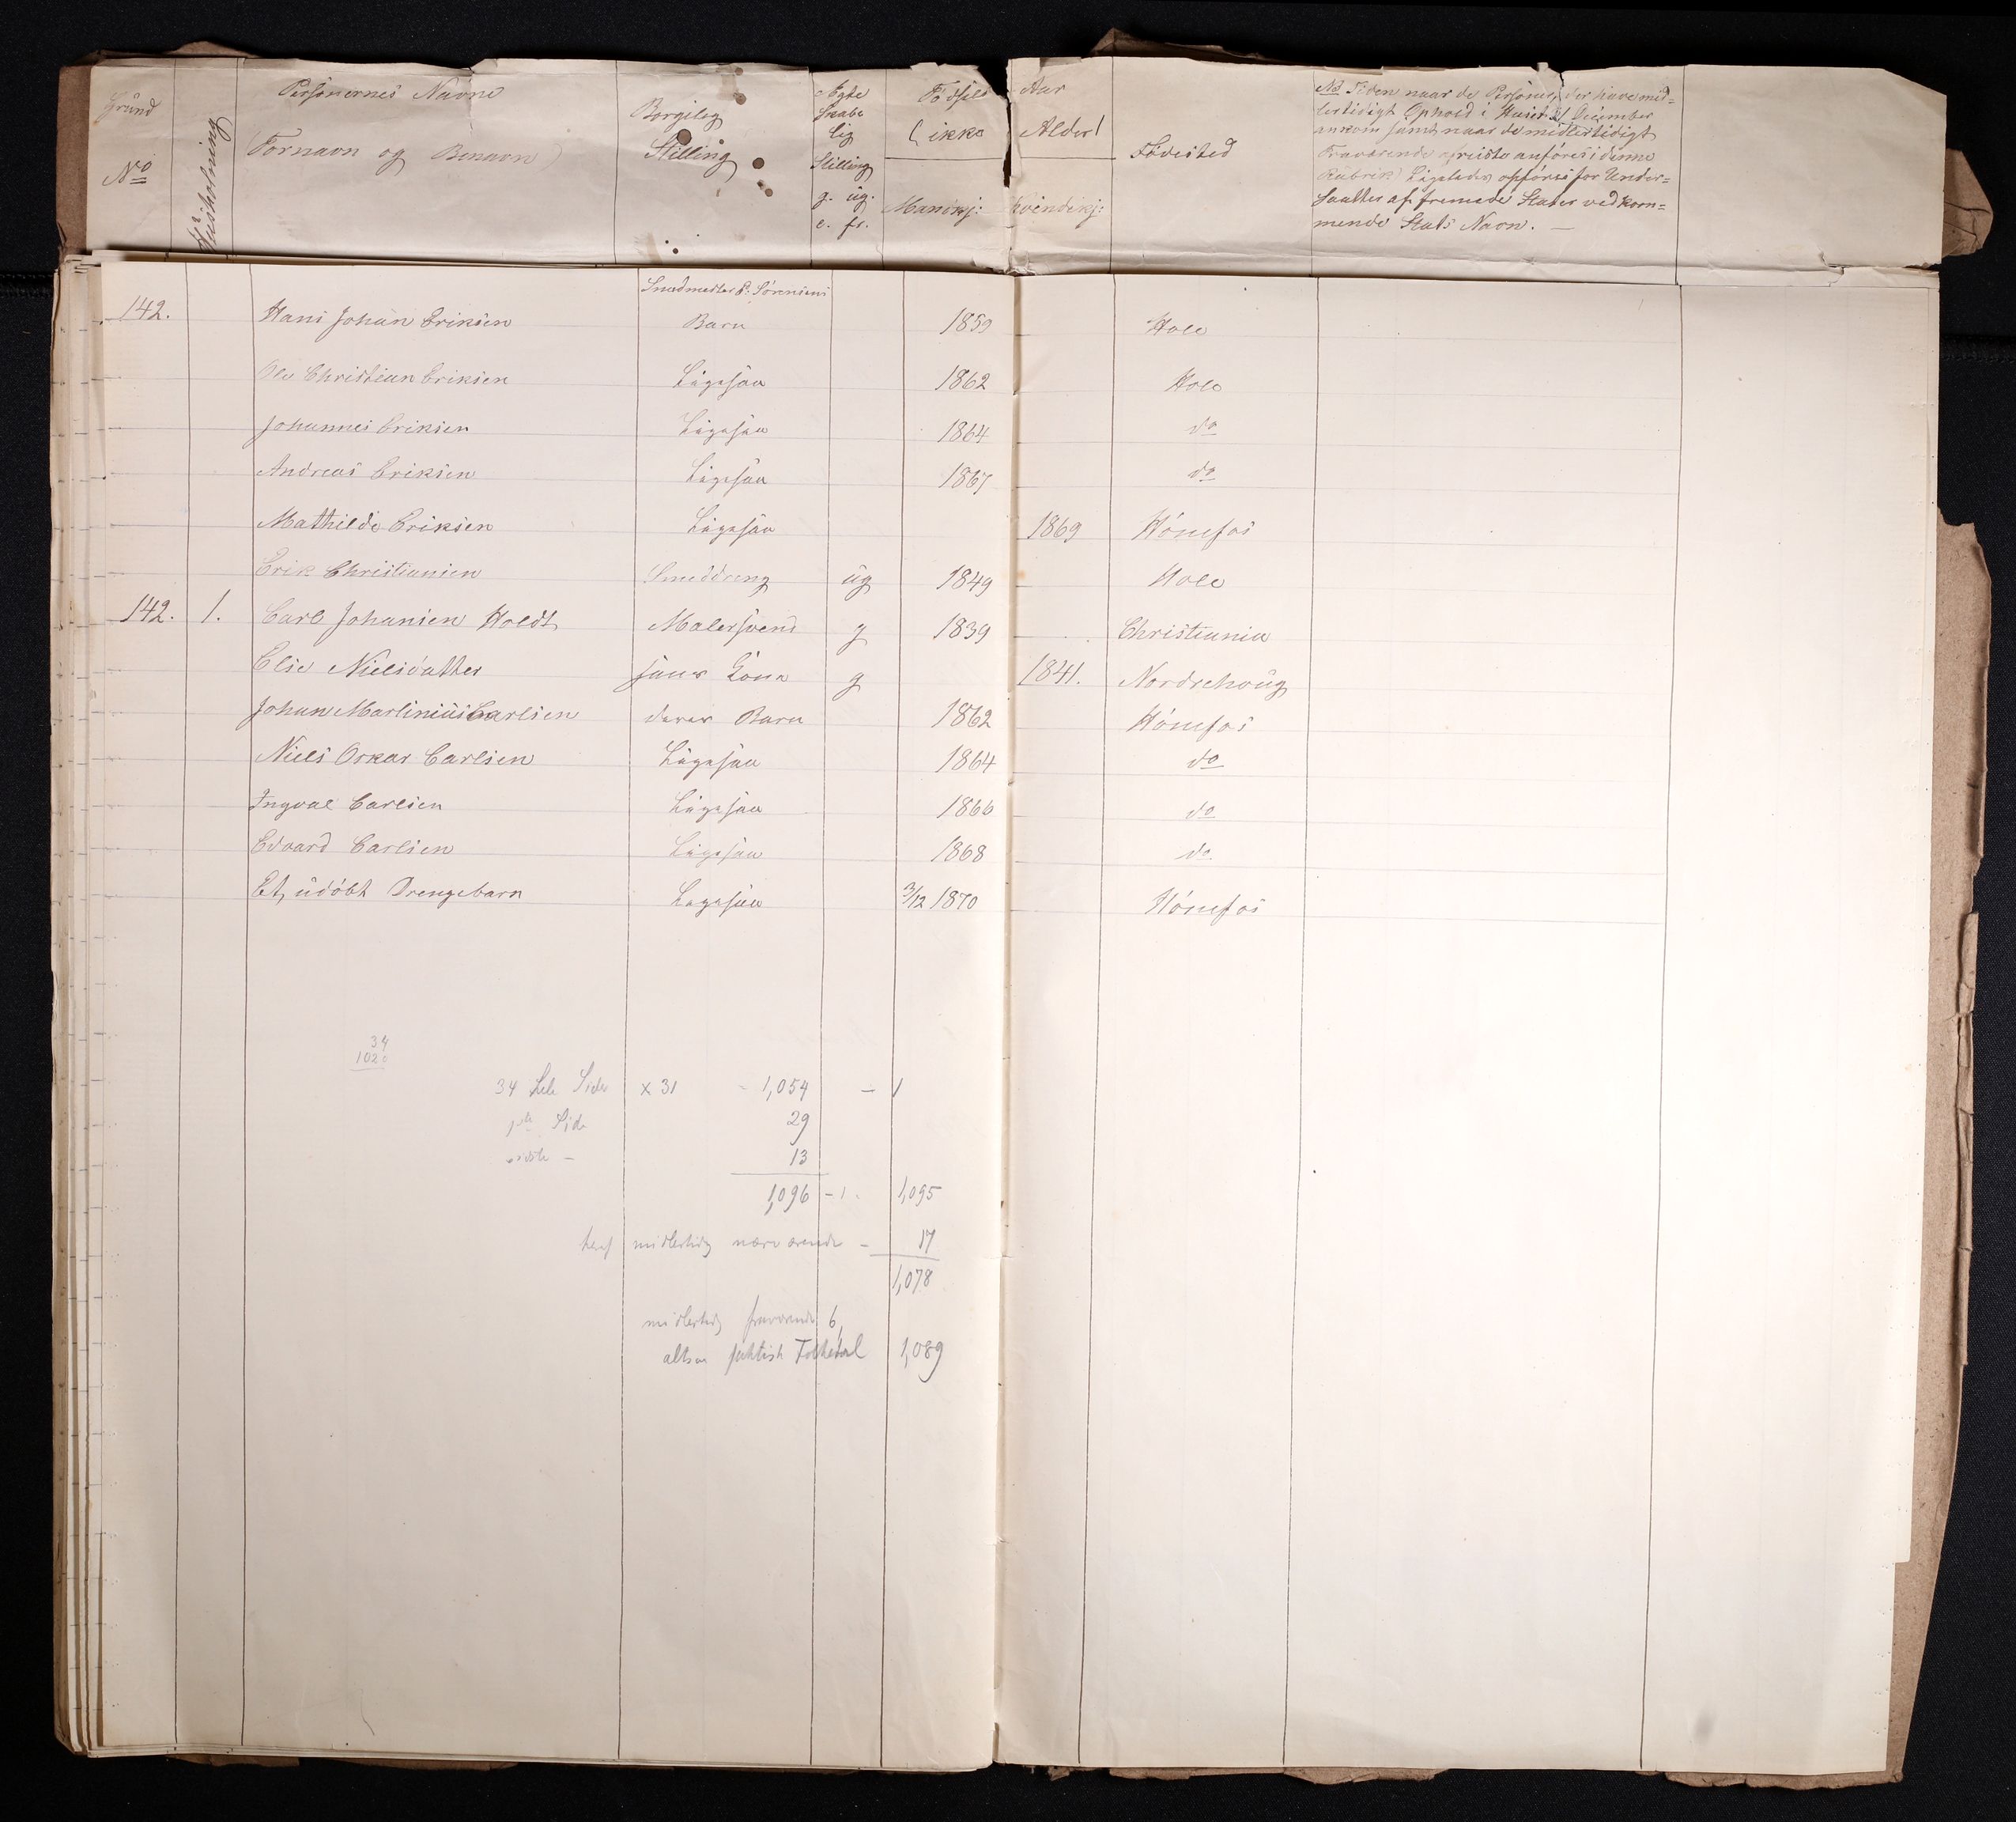 Grund
No
Huusholdning
Personernes Navne
(Fornavn og Benavn)
Borgileg
Stilling
Ægte
Skabe
lig
Stilling
g. ug.
e. fr.
Födsels Aar
(ikke Alder)
Mandkj: Kvindekj:
Födested
NB Tiden naar de Personer, der have mid=
lertidigt Ophold i Huset December
ankom samt naar de midlertidigt
Fraværende afreiste anföres i denne
Rubrik) Ligeledes opföres for Under=
saatter af fremede Stater vedkom=
mende Stats Navn. —
Smedmester P. Sörensens
142. Hans Johan Eriksen Barn 1859 Hole
Ole Christian Eriksen Ligesaa 1862 Hole
Johannes Eriksen Ligesaa 1864 do
Andreas Eriksen Ligesaa 1867 do
Mathilde Eriksen Ligesaa 1869 Hönefos
Erik Christiansen Smeddreng ug 1849 Hole
142. 1. Carl Johansen Holdt Malersvend g 1839 Christiania
Elie Nielsdatter hans Kona g 1841. Nordrehoug
Johan Martinius Carlsen deres Barn 1862 Hönefos
Niels Oskar Carlsen Ligesaa 1864 do
Ingval Carlsen Ligesaa 1866 do
Edvard Carlsen Ligesaa 1868 do
Et, udöbt Drengebarn Ligesaa 3/12 1870 Hönefos
34
102
34 hele Sider x 31 - 1,054 - 1
1ste Side 29
sidste — 13
1,096 - 1. 1,095
heraf midlertidig nærværende - 17
1,078
midlertidig fraværende 6,
altsaa faktisk Folketal 1,089